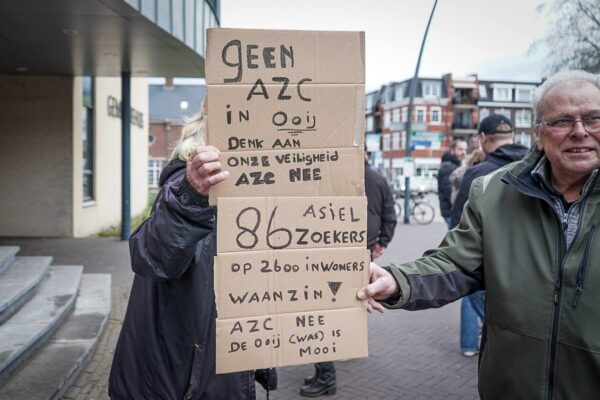 geEN
AZC
iN Ooij
DENK AAN
ONZE VEILIGHEID
AZC NEE
86 ASIEL
ZOEKERS
OP 2600 INWONERS
WAANZIN!
AZC NEE
DE OOIJ (WAS) IS
MOOI